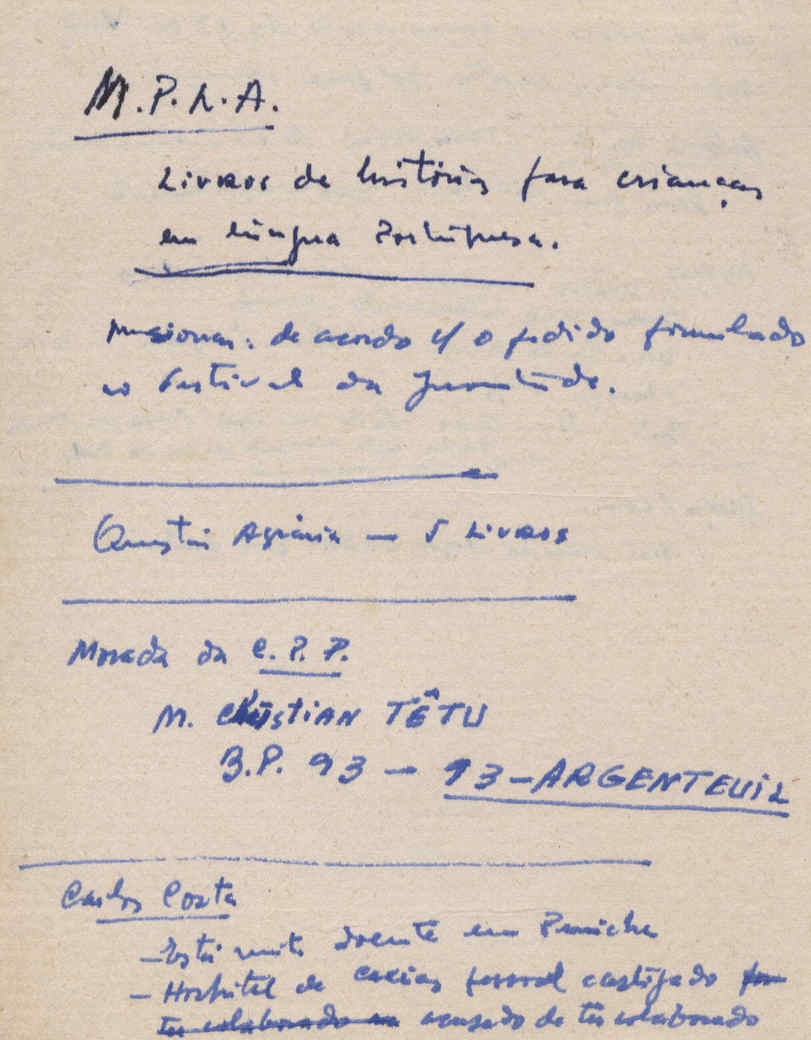 M.P.L.A.
Livros de história para crianças
em língua Portuguesa.
de acordo c/ o pedido formulado
no Festival da Juventude.
Questão Agrária — 5 Livros
Morada da C.P.P.
M. Christian TÊTU
B.P. 93 — 93 — ARGENTEUIL
Carlos Costa
— Está muito doente em Peniche
— Hospital de Caxias pessoal castigado por
ter colaborado acusado de ter colaborado